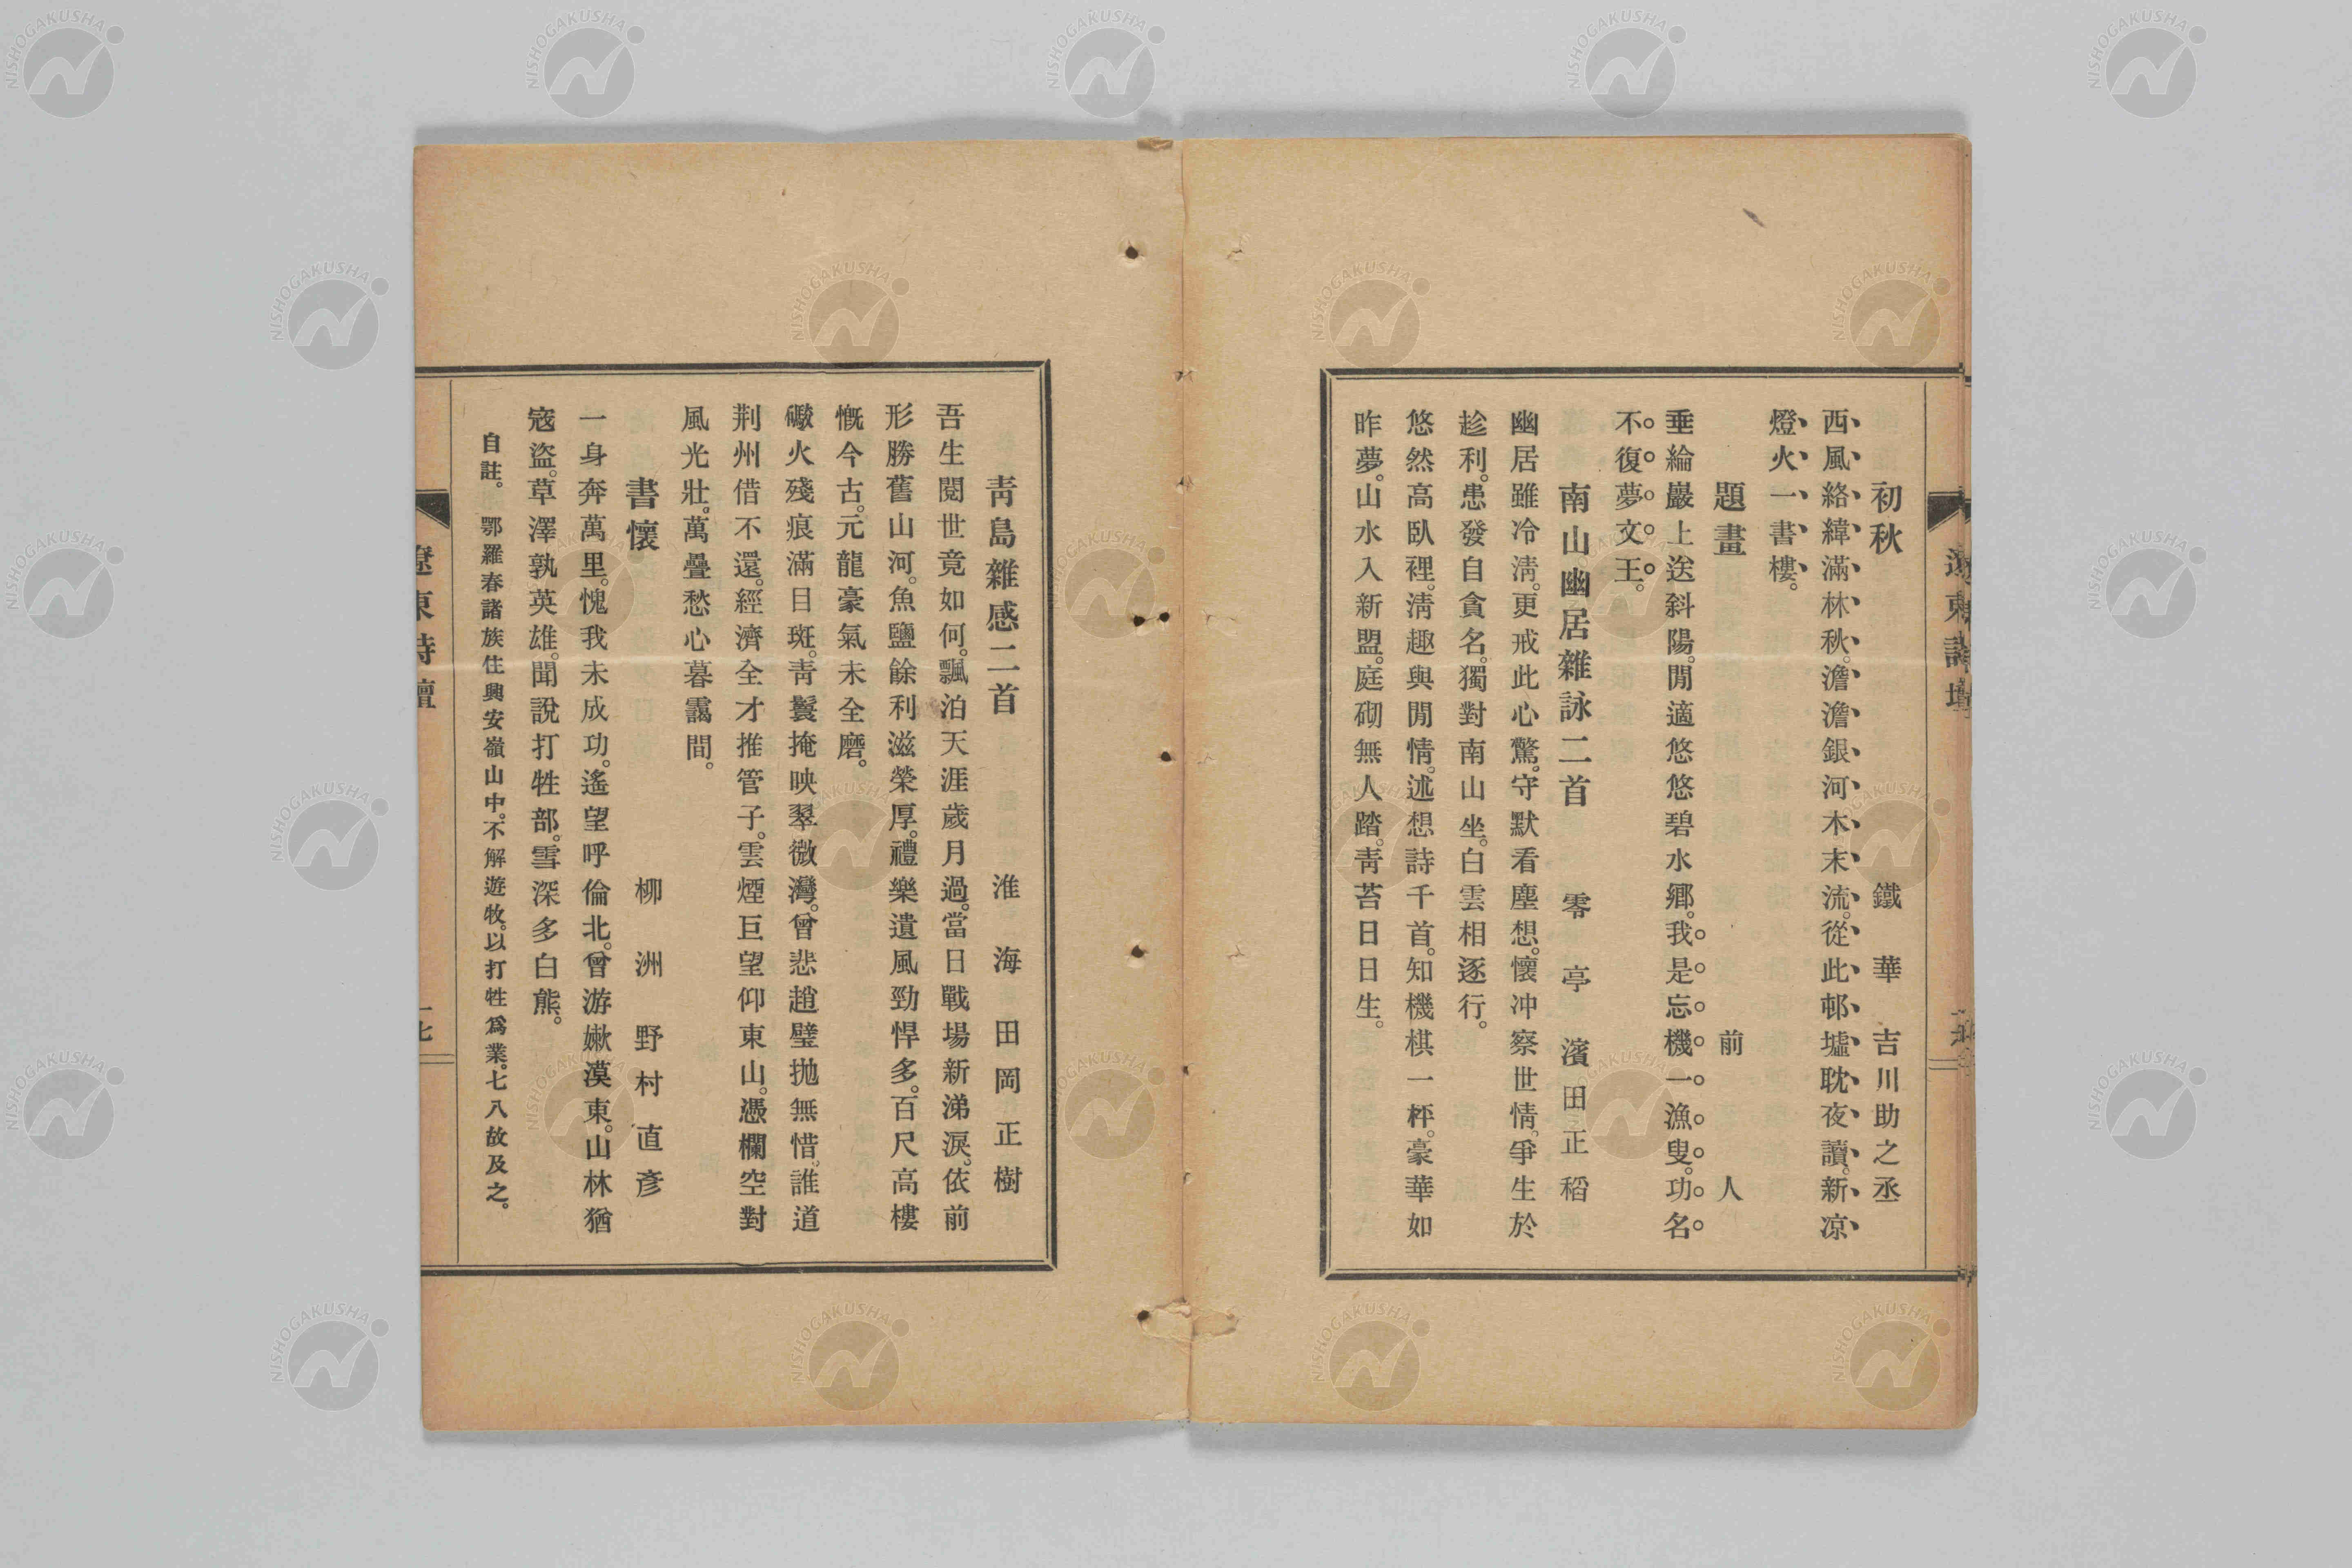 初秋　鐵華　吉川助之丞
西風絡緯滿林秋。澹澹銀河木末流。從此邨墟耽夜讀。新凉
燈火一書樓。
題畫　前人
垂綸巖上送斜陽。閒適悠悠碧水鄉。我是忘機一漁叟。功名
不復夢文王。
南山幽居雜詠二首　零亭　濱田正稻
幽居雖冷淸。更戒此心驚。守默看塵想。懷冲察世情。爭生於
趁利。患發自貪名。獨對南山坐。白雲相逐行。
悠然高臥裡。淸趣與閒情。述想詩千首。知機棋一枰。豪華如
昨夢。山水入新盟。庭砌無人踏。靑苔日日生。
靑島雜感二首　淮海　田岡正樹
吾生閱世竟如何。飄泊天涯歲月過。當日戰場新涕淚。依前
形勝舊山河。魚鹽餘利滋榮厚。禮樂遺風勁悍多。百尺高樓
慨今古。元龍豪氣未全磨。
礮火殘痕滿目斑。靑鬟掩映翠微灣。曾悲趙璧抛無惜。誰道
荆州借不還。經濟全才推管子。雲煙巨望仰東山。憑欄空對
風光壯。萬疊愁心暮靄間。
書懷　柳洲　野村直彥
一身奔萬里。愧我未成功。遙望呼倫北。曾游嫩漠東。山林猶
寇盜。草澤孰英雄。聞說打牲部。雪深多白熊。
自註。鄂羅春諸族住興安嶺山中。不解遊牧。以打牲爲業。七八故及之。
遼東詩壇
一七